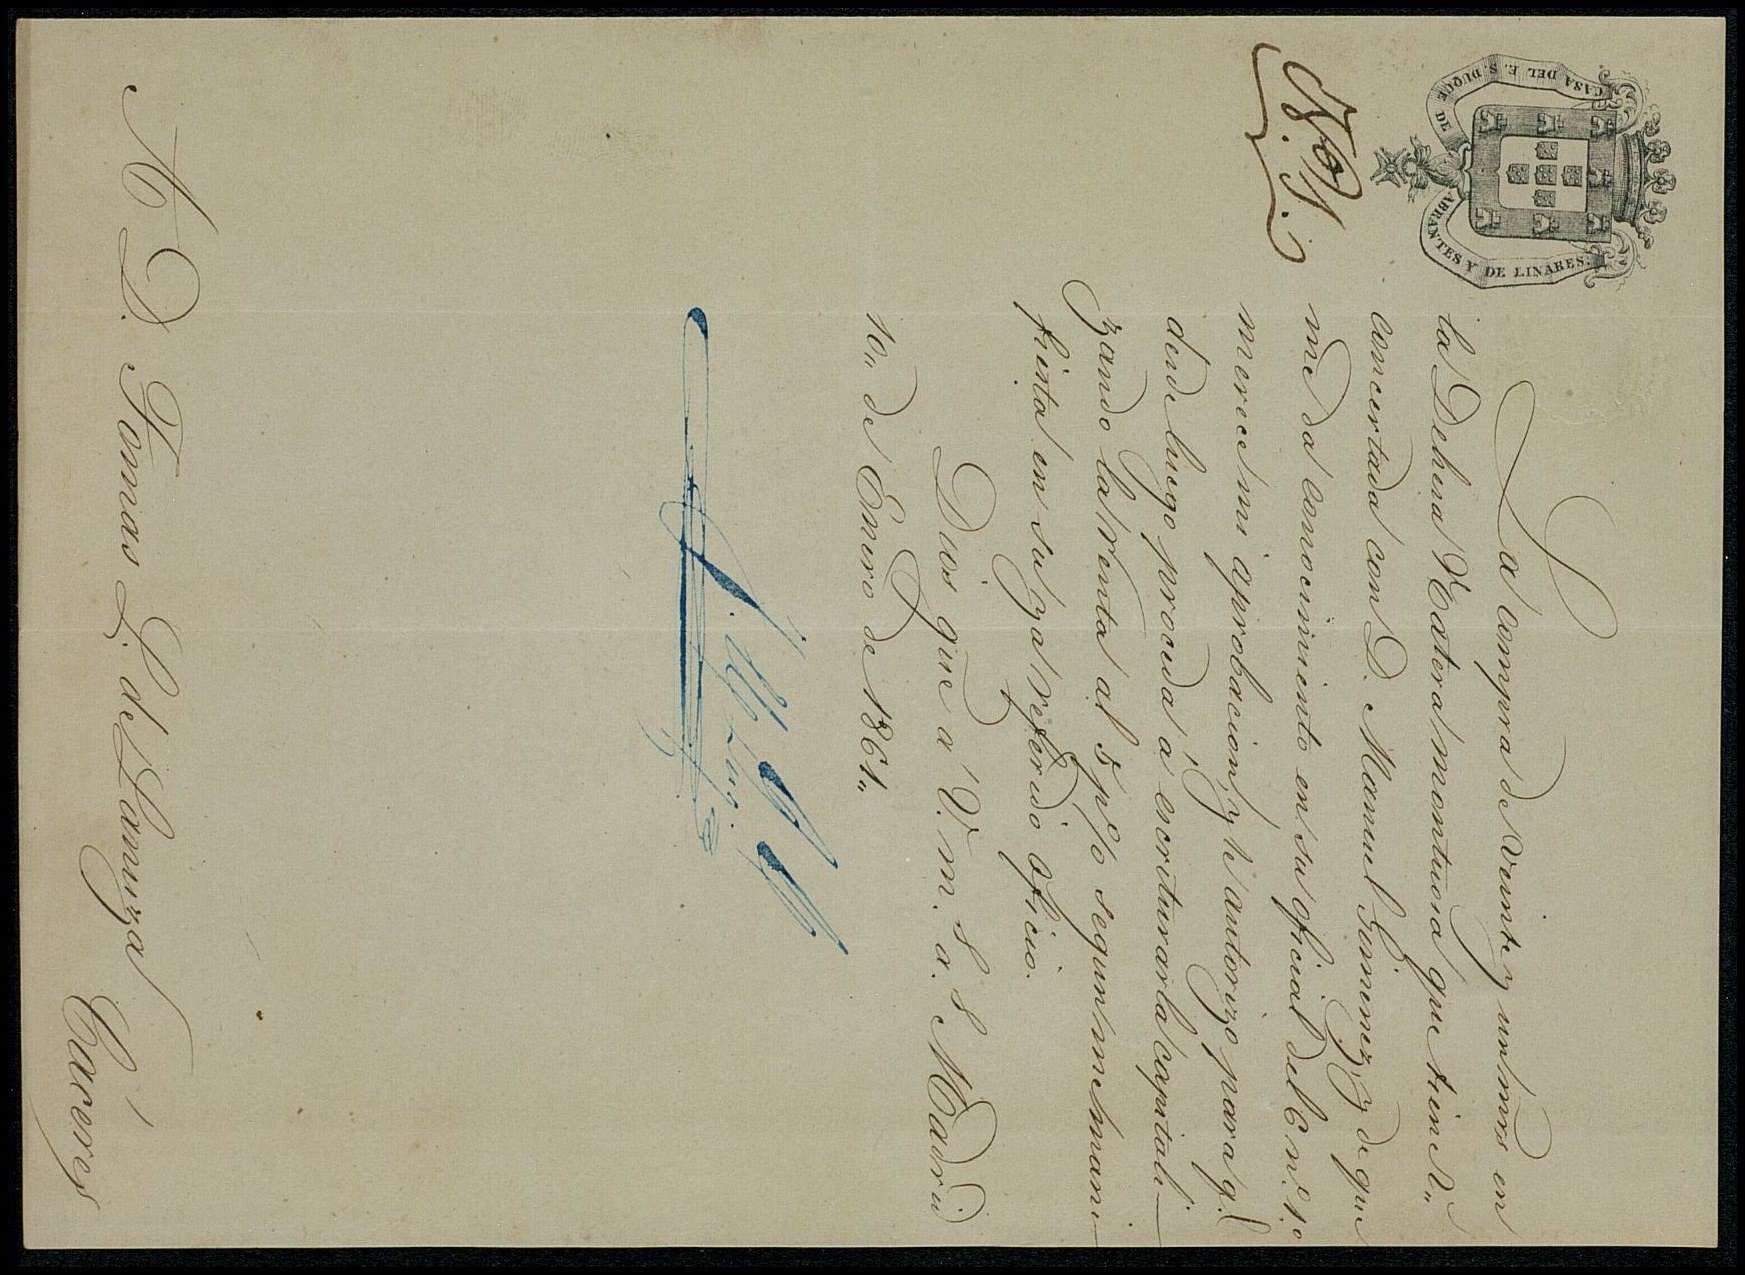 CASA DEL E. S. DUQUE DE ABRANTES Y DE LINARES.
N.º 1.
La compra de veinte y un mrs en
la Dehesa Matera montuosa que tiene V.
concertada con D. Manuel Gimenez, y de que
me da conocimiento en su oficial del En.º 1.º
merece mi aprobacion, y le autorizo para q.e
desde luego proceda á escriturarla capitali-
zando la renta al 5 p.º/o segun me mani-
fiesta en su ya referido oficio.
Dios gue á V. m. s. a. s Madrid
10,, de Enero de 1861,,
A D. Tomas L. de Lanuza Cáceres